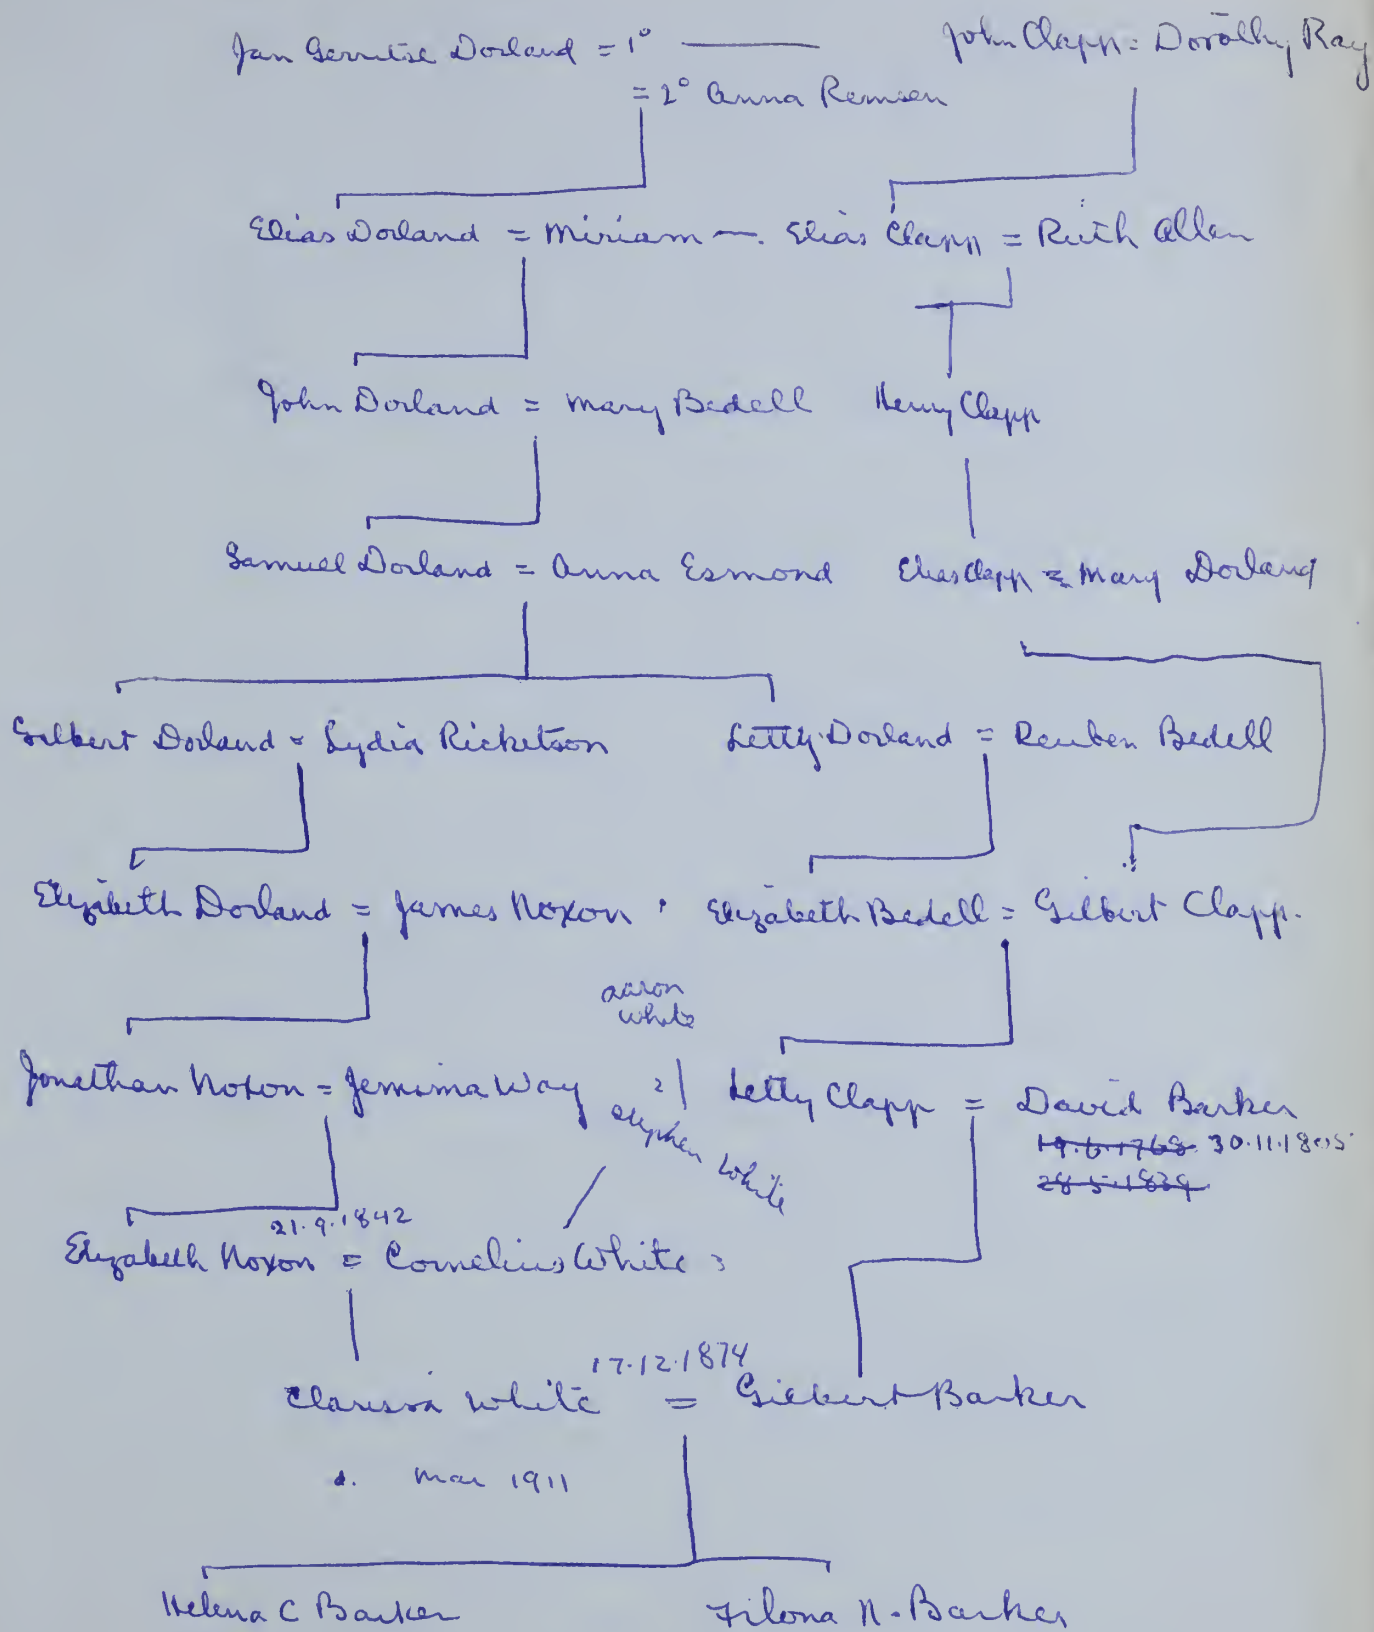 Jan Gerritse Dorland = 1° —— John Clapp = Dorothy Ray
= 2° Anna Remsen
Elias Dorland = Miriam —. Elias Clapp = Ruth Allen
John Dorland = Mary Bedell Henry Clapp
Samuel Dorland = Anna Esmond Elias Clapp = Mary Dorland
Gilbert Dorland = Lydia Ricketson Letty Dorland = Reuben Bedell
Elizabeth Dorland = James Noxon · Elizabeth Bedell = Gilbert Clapp.
Aaron
White
Jonathan Noxon = Jemima Way Letty Clapp = David Barker
Stephen White
19.6.1768 30.11.1805
28.5.1839
21.9.1842
Elizabeth Noxon = Cornelius White
17.12.1874
Clarissa White = Gilbert Barker
d. Mar 1911
Helena C Barker Filona N. Barker